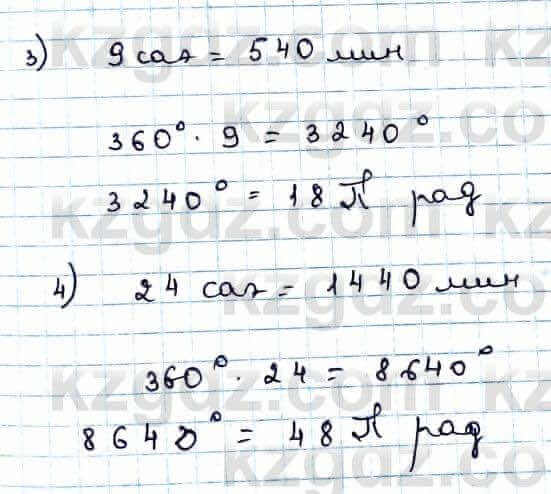 3) 9 сағ = 540 мин
360° · 9 = 3240°
3240° = 18 π рад
4) 24 сағ = 1440 мин
360° · 24 = 8640°
8640° = 48 π рад